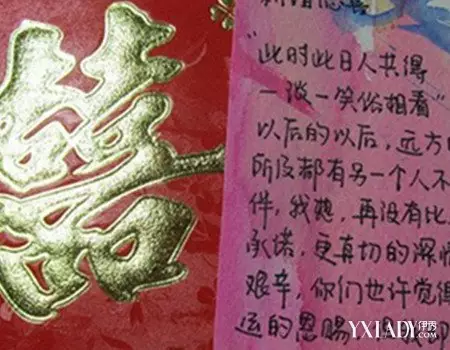 喜
新婚志喜
"此时此日人共得
一波一笑俗相看"
以后的以后，远方
所及都有另一个人不
件，我想，再没有比
承诺，更真切的深情
艰辛，你们也许觉得
运的恩赐
YXLADY.伊秀